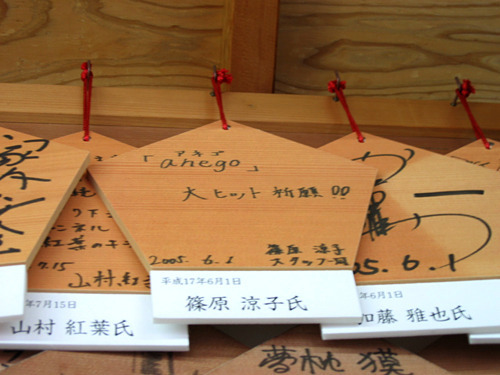 アネゴ
「anego」
大ヒット祈願!!
2005.6.1
篠原 涼子
スタッフ一同
平成17年6月1日
篠原 涼子氏
7.15
山村紅
年7月15日
山村 紅葉氏
05.6.1
年6月1日
加藤 雅也氏
夢枕 獏